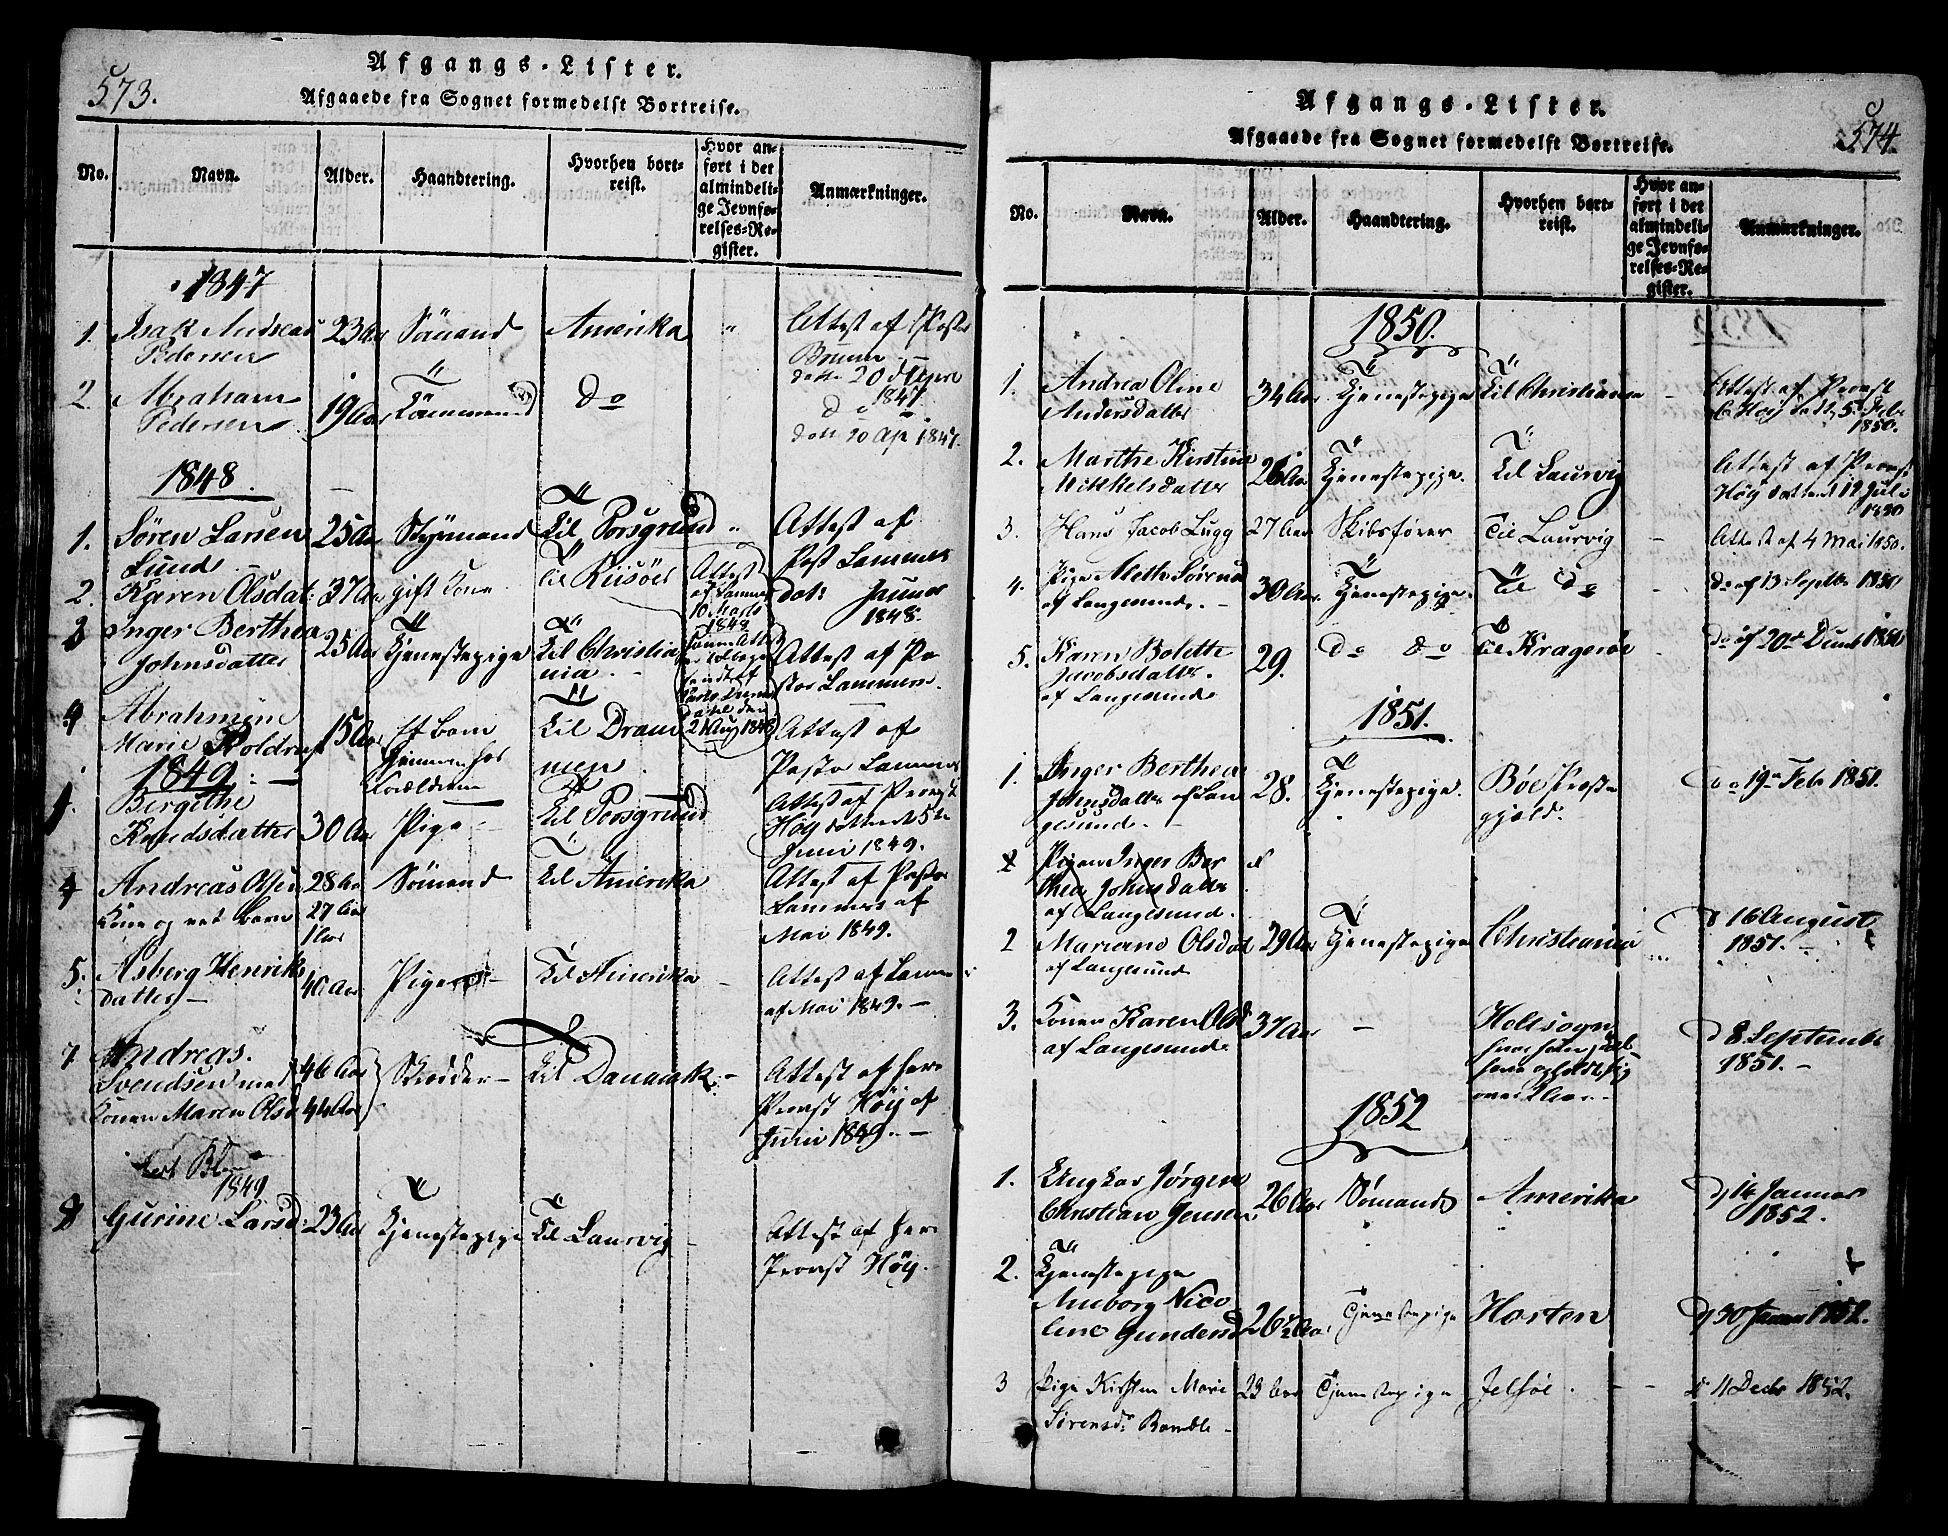 573.
Afgangs-Lister.
Afgaaede fra Sognet formedelst Bortreise.
No.
Navn.
Alder.
Haandtering.
Hvorhen bort-
reist.
Hvor an-
ført i det
almindeli-
ge Jevnfø-
relses-Re-
gister.
Anmærkninger.
1847
1. Isak Andreas 23 Aar Sömand Amerika " Attest af Pastor
Pedersen
datt 20
1847
2. Abraham 19 Aar do do
Pedersen
datt 20 Ap 1847.
1848.
1. Sören Larsen 25 Aar Styrmand Til Porsgrund " Attest af
Lund Past Lammers
2. Karen Olsdat: 37 Aar gift Kone til Riisöer dat: Januar
1848.
Attest
af Lammers
10 Marts
1848
3 Inger Berthea 25 Aar Tjenestepige Til Christia Attest af Pa
Johnsdatter nia. - stor Lammers.
2 Aug 1848
4 Abrahamine 15 Aar Et barn Til Dram Attest af
Marie Holdrup hjemme hos men Pastor Lammers
Forældrene
1849.
Bergithe
Knudsdatter 30 Aar Pige - Til Porsgrund Attest af Provst
Höy datteret 5te
Juni 1849.
4 Andreas Olsen 28 Aar Sömand Til Amerika Attest af Pastor
Kone og et barn 27 Aar Lammers af
1 Aar Mai 1849.
5. Asberg Henriks 40 Aar Pige - Til Amerika - Attest af Lammers
datter - af Mai 1849. -
7 Andreas. Attest af Herr
Svendsen med 46 Aar Skrædder - Til Danmark - Provst Höy af
Konen Maren Olsd 44 Aar Juni 1849. -
1849
8 Gurine Larsd: 23 Aar Tjenestepige Til Laurvig - Attest af Herr
Provst Höy.
574.
Afgangs-Lister.
Afgaaede fra Sognet formedelst Bortreise.
No.
Navn.
Alder.
Haandtering.
Hvorhen bort-
reist.
Hvor an-
ført i det
almindeli-
ge Jevnfø-
relses-Re-
gister.
Anmærkninger.
1850.
1. Andrea Oline 34 Aar Tjenestepige Til Christiania - Attest af Provst
Andersdatter Höy datt. 5 Febr
1850.
2. Marthe Kirstine 26 Aar Tjenestepige. Til Laurvig Attest af Provst
Mikkelsdatter Höy datteret 12 Juli
1850
3. Hans Jacob Lugg 27 Aar Skibsfører Til Laurvig - Attest af 4 Mai 1850.
4. Pige Methe Sörens 30 Aar. Tjenestepige. Til do - do af 13 Septbr 1850
af Langesund. -
5. Karen Bolette 29. do do Til Krageröe - do af 20de Decmb 1850
Jacobsdatter.
af Langesund
1851.
1. Inger Berthea 28. Tjenestepige. Böe Præste do 19 Febr 1851.
Johnsdatter af Lan gjeld.
gesund. -
Pigen Inger Ber
thea Johnsdatter
af Langesund.
2 Mariane Olsdat 29 Aar Tjenestepige Christiania d 16 August
af Langesund 1851. -
3. Konen Karen Olsd 37 Aar - Holtsogn d 8 September
af Langesund. 1851. -
1852
1. Ungkar Jørgen 26 Aar Sømand Amerika d 14 Januar
Christian Jensen 1852.
2. Tjenestepige
Anborg Nico 26½ Aar Tjenestepige Horten d 30 Januar 1852.
line Gundersd
3 Pige Kirsten Marie 23 Aar Tjenestepige Jelsöe. - - d 11 Decbr 1852.
Sörensdr Bamble -